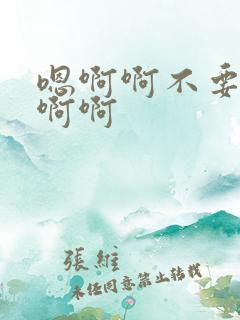 嗯啊啊不要
啊啊
張維
未经同意禁止转载